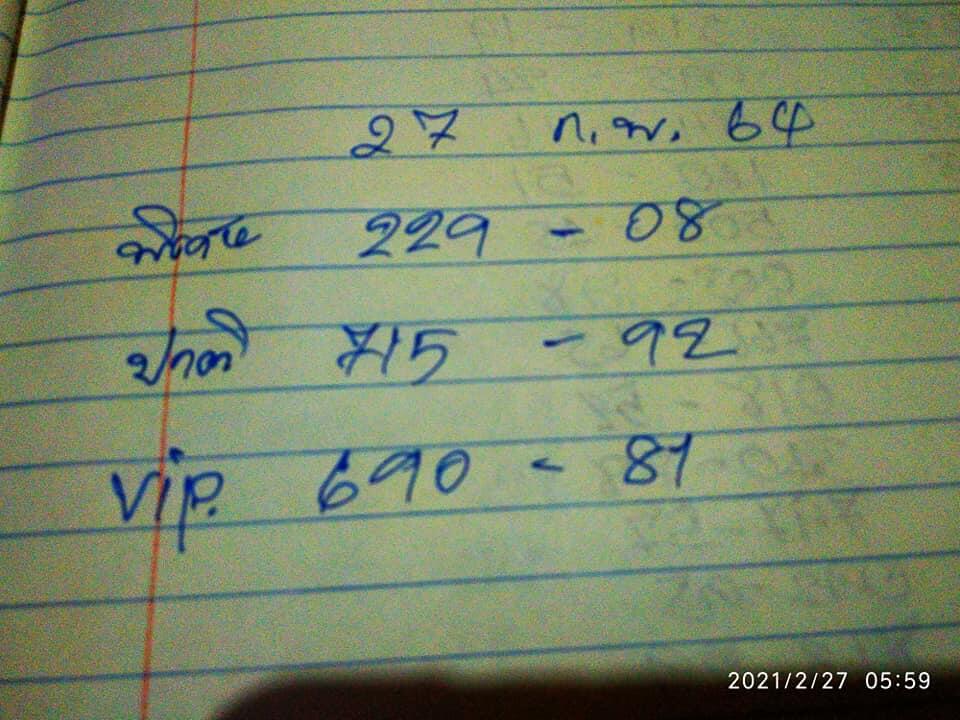 27 ก.พ. 64
พิเศษ 229 - 08
ปกติ 715 - 92
Vip. 690 - 81
2021/2/27 05:59